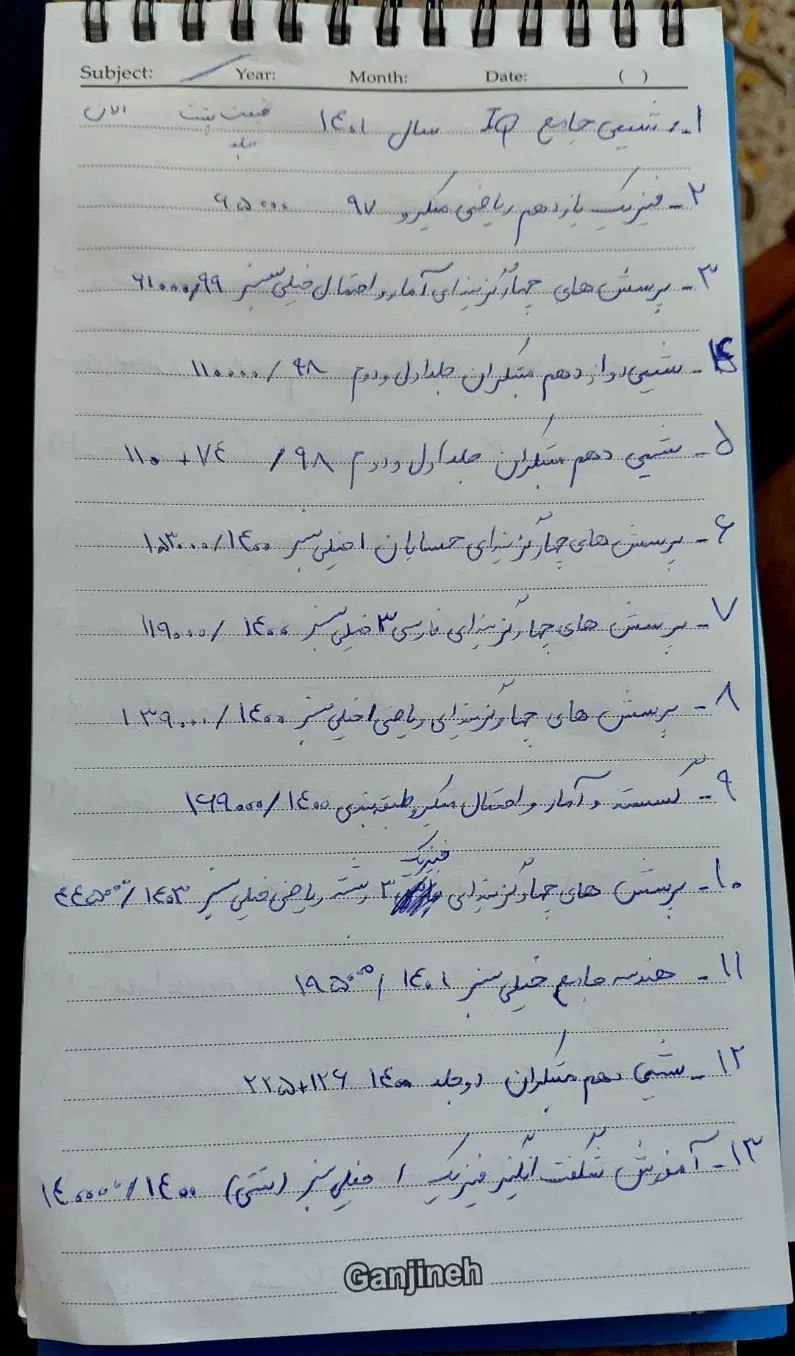 Subject: Year: Month: Date: ( )
۱ـ شیمی جامع IQ سال ۱۴۰۱ قیمت پشت جلد الان
۲ـ فیزیک یازدهم ریاضی میکرو ۹۷ ۶۵۰۰۰
۳ـ پرسش های چهارگزینه‌ای آمار و احتمال خیلی سبز ۹۹/۶۱۰۰۰
۴ـ شیمی دوازدهم مبتکران جلد اول و دوم ۹۸/۱۱۰۰۰۰
۵ـ شیمی دهم مبتکران جلد اول و دوم ۹۸/ ۷۴+۱۱۰
۶ـ پرسش های چهارگزینه‌ای حسابان ۱ خیلی سبز ۱۴۰۰/۱۵۳۰۰۰
۷ـ پرسش های چهارگزینه‌ای فارسی ۳ خیلی سبز ۱۴۰۰/۱۱۹۰۰۰
۸ـ پرسش های چهارگزینه‌ای ریاضی ۱ خیلی سبز ۱۴۰۰/۱۳۹۰۰۰
۹ـ گسسته و آمار و احتمال میکرو طبقه‌بندی ۱۴۰۰/۱۶۹۰۰۰
۱۰ـ پرسش های چهارگزینه‌ای فیزیک ۳ رشته ریاضی خیلی سبز ۱۴۰۳/۴۴۵۰۰۰
۱۱ـ هندسه جامع خیلی سبز ۱۴۰۱/۱۹۵۰۰۰
۱۲ـ شیمی دهم مبتکران دو جلد ۱۴۰۰ ۱۲۶+۲۲۵
۱۳ـ آموزش شگفت انگیز فیزیک ۱ خیلی سبز (تستی) ۱۴۰۰/۱۴۰۰۰۰
Ganjineh